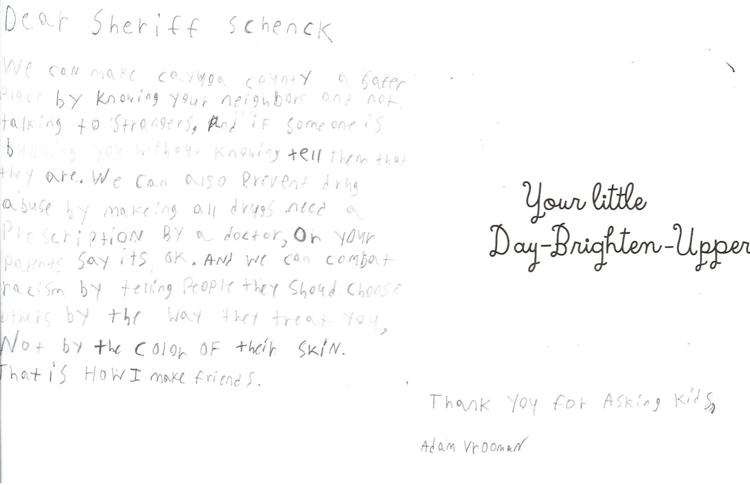 Dear Sheriff Schenck
We can make cayuga county a safer
place by knowing your neighbors and not
talking to strangers, And if someone is
bullying you without knowing tell them that
they are. We can also Prevent drug
abuse by makeing all drugs need a
Prescription By a doctor, Or your
parents say its ok. And we can combat
racism by telling People they should choose
others by the way they treat you,
Not by the color of their skin.
That is How I make friends.
Your little
Day-Brighten-Upper
Thank you for Asking Kids,
Adam Vrooman